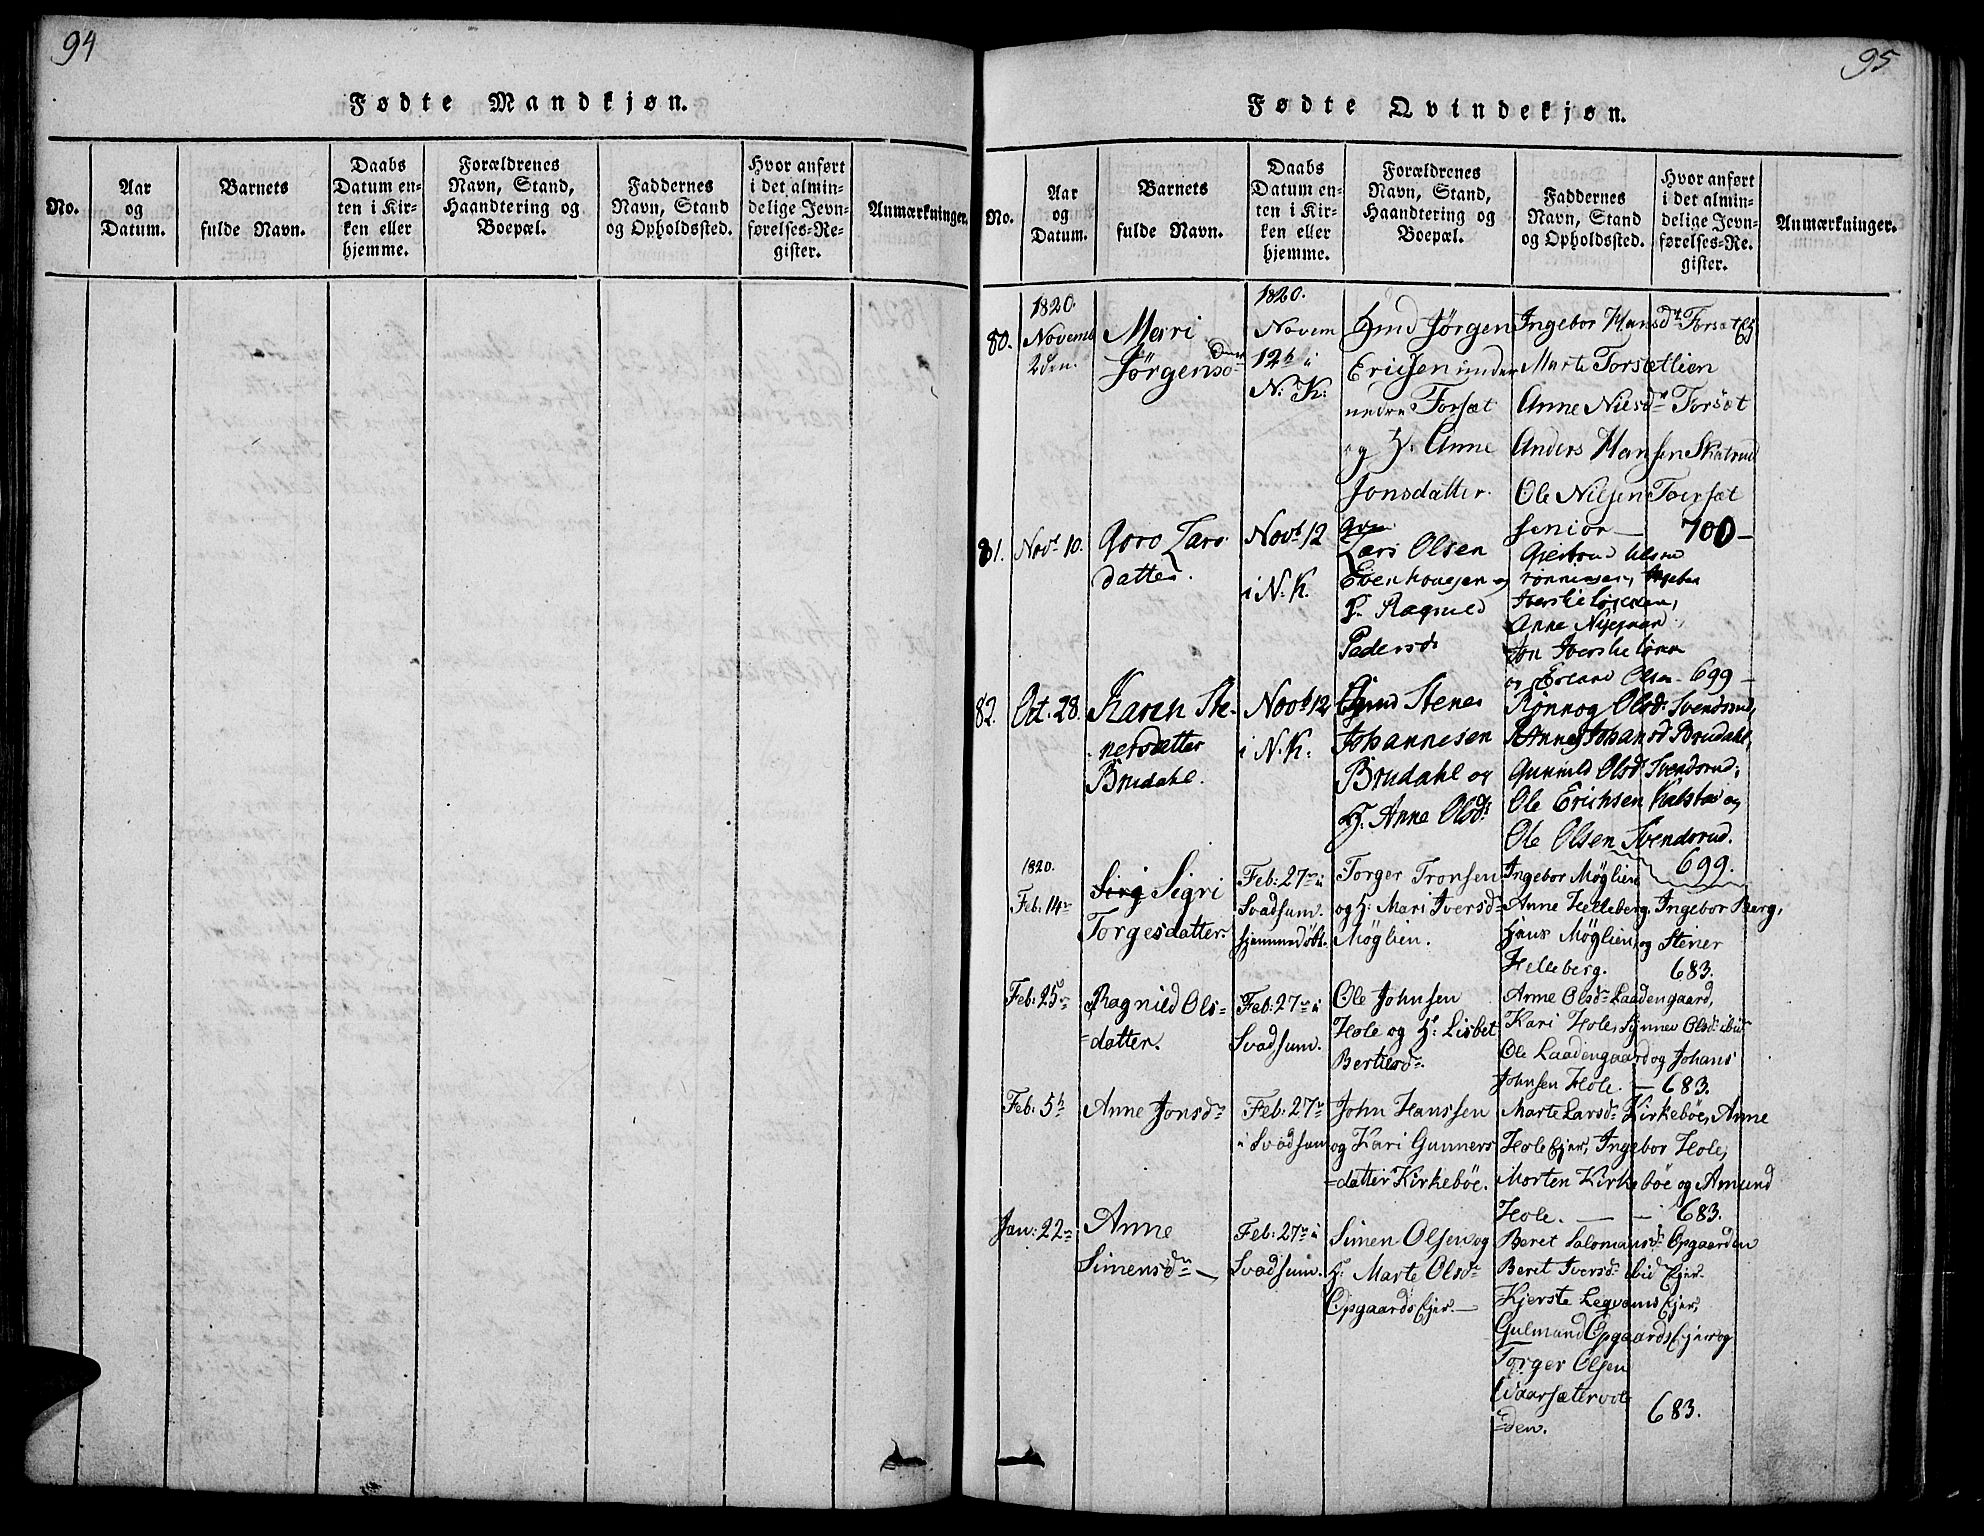 94
Fødte Mandkjøn.
No.
Aar
og
Datum.
Barnets
fulde Navn.
Daabs
Datum en-
ten i Kir-
ken eller
hjemme.
Forældrenes
Navn, Stand,
Haandtering og
Boepæl.
Faddernes
Navn, Stand
og Opholdssted.
Hvor anført
i det almin-
delige Jevn-
førelses-Re-
gister.
Anmærkninger.
95
Fødte Qvindekjøn.
No.
Aar
og
Datum.
Barnets
fulde Navn.
Daabs
Datum en-
ten i Kir-
ken eller
hjemme.
Forældrenes
Navn, Stand,
Haandtering og
Boepæl.
Faddernes
Navn, Stand
og Opholdssted.
Hvor anført
i det almin-
delige Jevn-
førelses-Re-
gister.
Anmærkninger.
80.
1820.
Novemb
2den.
Mari
Jörgensdr
1820.
Novem
12te i
N. K.
Jörgen
Ericsen
nedre Forsæt
og H. Anne
Jonsdatter.
Ingebor Hansdr Forsæt Ej
Marte Forsætlien
Anne Nilsdr Forsæt
Anders Hansen Skatrud
Ole Nilsen Forsæt
senior — 700 —
81.
Novb 10.
Goro Lars
datter.
Novb 12
i N. K.
Lars Olsen
Evenhougen og
H. Ragnild
Pedersdr
Ingebor
Anne Nygaard,
Jon
og Erland Olsen 699 —
82.
Oct. 28.
Karen Ste-
nersdatter
Brudahl.
Novb 12
i N. K.
Stener
Johannesen
Brudahl og
H. Anne Olsdr
Rönnog Olsdr Svendsrud,
Anne Johansdr Brudahl,
Gunnild Olsdr Svendsrud,
Ole Erichsen Kalstad og
Ole Olsen Svendsrud.
699.
1820.
Feb: 14n
Sigri
Torgesdatter
Feb: 27n i
Svadsum.
hjemmedøbt.
Torger Tronsen
og H: Mari Iversdr
Møglien.
Ingebor Møglien
Anne Helleberg, Ingebor Berg,
Hans Møglien og Stener
Helleberg. 683.
Feb: 25n
Ragnild Ols-
=datter.
Feb: 27n i
Svadsum.
Ole Johnsen
Hole og H: Lisbet
Bertelsdr.
Anne Olsdr Laadengaard,
Kari Hole, Synnev Olsdr ibid
Ole Laadengaard og Johans
Johnsen Hole. — 683.
Feb: 5te
Anne Jonsdr
Feb: 27n
i Svadsum
John Hanssen
og Kari Gunners
=datter Kirkebøe.
Marte Larsdr Kirkebøe, Anne
Hole Ejer, Ingebor Hole,
Morten Kirkebøe og Amund
Hole. — — 683.
Jan: 22n
Anne
Simensdr —
Feb: 27n i
Svadsum.
Simen Olsen og
H: Marte Olsdr
Opgaards Ejer. —
Beret Salomansdr Opgaarden
Beret Iversdr ibid Ejer.
Kjerste Legvams Ejer,
Gulmund Opgaards Ejer og
Torger Olsen
=den. 683.